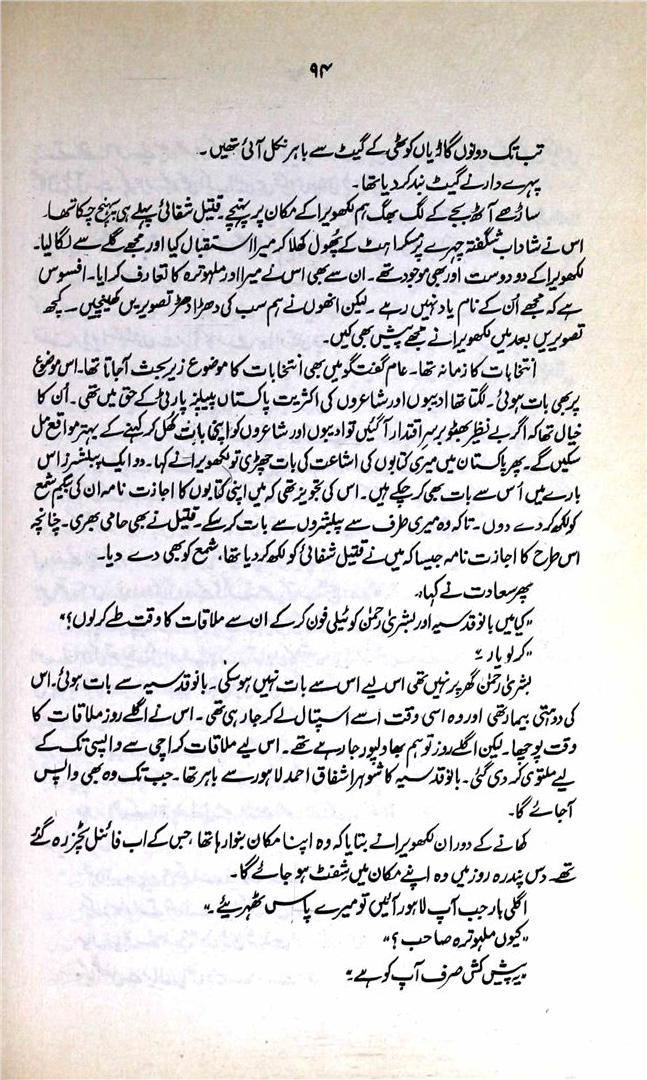 ۹۴
تب تک دونوں گاڑیاں کوٹھی کے گیٹ سے باہر نکل آئی تھیں۔
پہرے دار نے گیٹ بند کر دیا تھا۔
ساڑھے آٹھ بجے کے لگ بھگ ہم لکھویرا کے مکان پر پہنچے۔ قتیل شفائی پہلے ہی پہنچ چکا تھا۔
اس نے شاداب شگفتہ چہرے پر مسکراہٹ کے پھول کھلا کر میرا استقبال کیا اور مجھے گلے سے لگا لیا۔
لکھویرا کے دو دوست اور بھی موجود تھے۔ ان سے بھی اس نے میرا اور ملہوترہ کا تعارف کرایا۔ افسوس
ہے کہ مجھے اُن کے نام یاد نہیں رہے۔ لیکن انھوں نے ہم سب کی دھڑا دھڑ تصویریں کھینچیں۔ کچھ
تصویریں بعد میں لکھویرا نے مجھے پیش بھی کیں۔
انتخابات کا زمانہ تھا۔ عام گفتگو میں بھی انتخابات کا موضوع زیرِ بحث آجاتا تھا۔ اس موضوع
پر بھی بات ہوئی۔ لگتا تھا ادیبوں اور شاعروں کی اکثریت پاکستان پیپلز پارٹی کے حق میں تھی۔ اُن کا
خیال تھا کہ اگر بے نظیر بھٹو بر سرِ اقتدار آگئیں تو ادیبوں اور شاعروں کو اپنی بات کھُل کر کہنے کے بہتر مواقع مل
سکیں گے۔ پھر پاکستان میں میری کتابوں کی اشاعت کی بات چھڑی تو لکھویرا نے کہا۔ دو ایک پبلشرز اس
بارے میں اُس سے بات بھی کر چکے ہیں۔ اس کی تجویز تھی کہ میں اپنی کتابوں کا اجازت نامہ ان کی بیگم شمع
کو لکھ کر دے دوں۔ تاکہ وہ میری طرف سے پبلشروں سے بات کر سکے۔ قتیل نے بھی حامی بھری۔ چنانچہ
اس طرح کا اجازت نامہ جیسا کہ میں نے قتیل شفائی کو لکھ کر دیا تھا، شمع کو بھی دے دیا۔
پھر سعادت نے کہا۔
"کیا میں بانو قدسیہ اور بشریٰ رحمٰن کو ٹیلی فون کر کے ان سے ملاقات کا وقت طے کر لوں؟"
"کر لو یار۔"
بشریٰ رحمٰن گھر پر نہیں تھی اس لیے اس سے بات نہیں ہوسکی۔ بانو قدسیہ سے بات ہوئی۔ اس
کی دوہتی بیمار تھی اور وہ اسی وقت اسے اسپتال لے کر جا رہی تھی۔ اس نے اگلے روز ملاقات کا
وقت پوچھا۔ لیکن اگلے روز تو ہم بھاولپور جا رہے تھے۔ اس لیے ملاقات کراچی سے واپسی تک کے
لیے ملتوی کر دی گئی۔ بانو قدسیہ کا شوہر اشفاق احمد لاہور سے باہر تھا۔ جب تک وہ بھی واپس
آجائے گا۔
کھانے کے دوران لکھویرا نے بتایا کہ وہ اپنا مکان بنوا رہا تھا، جس کے اب فائنل ٹچز رہ گئے
تھے۔ دس پندرہ روز میں وہ اپنے مکان میں شفٹ ہو جائے گا۔
اگلی بار جب آپ لاہور آئیں تو میرے پاس ٹھہریئے۔"
"کیوں ملہوترہ صاحب؟"
یہ پیش کش صرف آپ کو ہے۔"